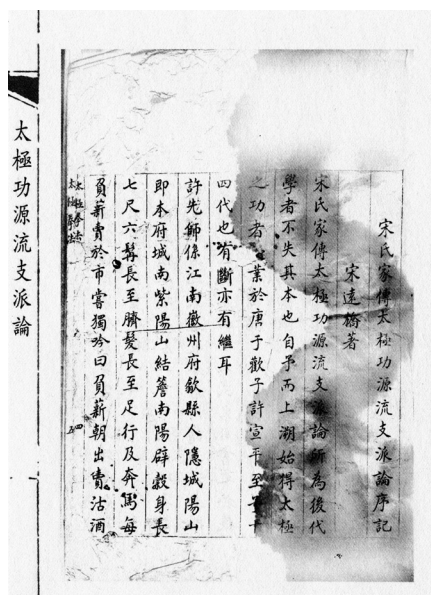 宋氏家傳太極功源流支派論序記
宋遠橋著
宋氏家傳太極功源流支派論所為後代
學者不失其本也自予而上溯始得太極
之功者業於唐于歡子許宣平至十
四代也有斷亦有繼耳
許先師係江南徽州府歙縣人隱城陽山
即本府城南紫陽山結簷南陽辟穀身長
七尺六髯長至臍髮長至足行及奔馬每
負薪賣於市嘗獨吟曰負薪朝出賣沽酒
太極功源流支派論